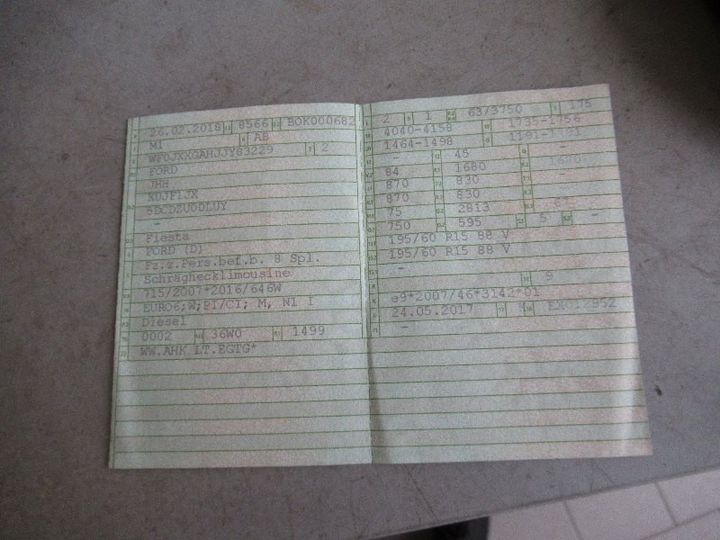 26.02.2018 8566 BOK000682
M1 AB
2
FORD
JHH
XUJF1JX
5DCDZU0DLUY
-
Fiesta
FORD (D)
Fz.z.Pers.bef.b. 8 Spl.
Schräghecklimousine
715/2007*2016/646W
EURO6;W;PI/CI; M, N1 I
Diesel
0002 36W0 1499
WW.AHK LT.EGTG*
2 1 63/3750 175
4040-4158 1735-1756
1464-1498
- 45 -
84 1680
870 830 -
870 830 -
75 2813
750 595 5 -
195/60 R15 88 V
195/60 R15 88 V
-
9
e9*2007/46*3142*01
24.05.2017
-